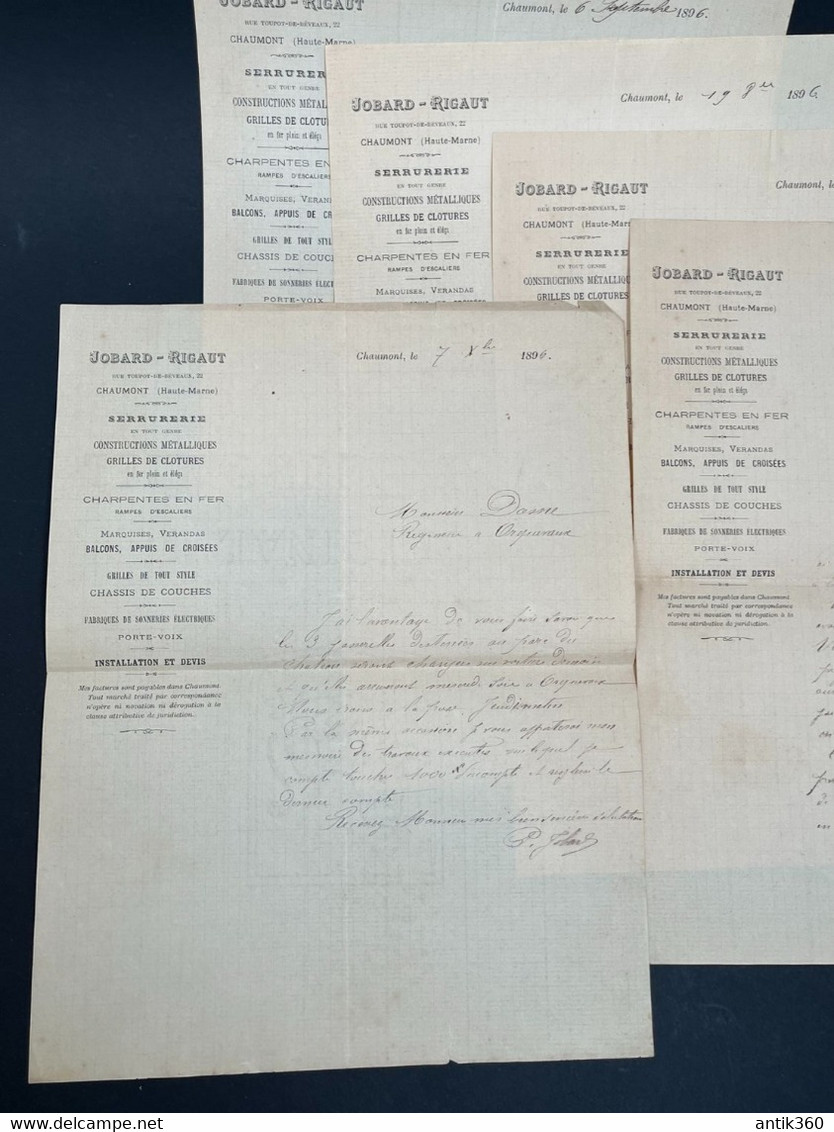 JOBARD - RIGAUT
RUE TOUPOT-DE-BÉVEAUX, 22
CHAUMONT (Haute-Marne)
SERRURERIE
EN TOUT GENRE
CONSTRUCTIONS MÉTALL
GRILLES DE CLOTU
en fer plein et élég
CHARPENTES EN
RAMPES D'ESCALIER
MARQUISES, VERAN
BALCONS, APPUIS DE CR
GRILLES DE TOUT STYL
CHASSIS DE COUCHES
FABRIQUES DE SONNERIES ÉLECT
PORTE-VOIX
Chaumont, le 6 Septembre 1896.
JOBARD - RIGAUT
RUE TOUPOT-DE-BÉVEAUX, 22
CHAUMONT (Haute-Marne)
SERRURERIE
EN TOUT GENRE
CONSTRUCTIONS MÉTALLIQUES
GRILLES DE CLOTURES
en fer plein et élégi
CHARPENTES EN FER
RAMPES D'ESCALIERE
MARQUISES, VERANDAS
Chaumont, le 19 8bre 1896.
JOBARD - RIGAUT
RUE TOUPOT-DE-BÉVEAUX, 22
CHAUMONT (Haute-Mar
SERRURERIE
EN TOUT GENRE
CONSTRUCTIONS MÉTALLIQU
GRILLES DE CLOTURES
Chaumont, le
JOBARD - RIGAUT
RUE TOUPOT-DE-BÉVEAUX, 22
CHAUMONT (Haute-Marne)
SERRURERIE
EN TOUT GENRE
CONSTRUCTIONS MÉTALLIQUES
GRILLES DE CLOTURES
en fer plein et élégi
CHARPENTES EN FER
RAMPES D'ESCALIERE
MARQUISES, VERANDAS
BALCONS, APPUIS DE CROISÉES
GRILLES DE TOUT STYLE
CHASSIS DE COUCHES
FABRIQUES DE SONNERIES ÉLECTRIQUES
PORTE-VOIX
INSTALLATION ET DEVIS
Mes factures sont payables dans Chaumont
Tout marché traité par correspondance
n'opère ni novation ni dérogation à la
clause attributive de juridiction.
JOBARD - RIGAUT
RUE TOUPOT-DE-BÉVEAUX, 22
CHAUMONT (Haute-Marne)
SERRURERIE
EN TOUT GENRE
CONSTRUCTIONS MÉTALLIQUES
GRILLES DE CLOTURES
en fer plein et élégi
CHARPENTES EN FER
RAMPES D'ESCALIERE
MARQUISES, VERANDAS
BALCONS, APPUIS DE CROISÉES
GRILLES DE TOUT STYLE
CHASSIS DE COUCHES
FABRIQUES DE SONNERIES ÉLECTRIQUES
PORTE-VOIX
INSTALLATION ET DEVIS
Mes factures sont payables dans Chaumont.
Tout marché traité par correspondance
n'opère ni novation ni dérogation à la
clause attributive de juridiction.
Chaumont, le 7 Xbre 1896.
Monsieur
à Orquevaux
J'ai l'avantage de vous faire savoir que
les 3 passerelles destinées au parc du
château seront chargées sur voiture demain
et qu'elles arriveront mercredi soir à Orquevaux
à la pose Jeudi matin
Par la même occasion je vous apporterai mon
mémoire des travaux exécutés sur lequel je
compte toucher 1000 f d'acompte et régler le
dernier compte
Recevez Monsieur mes bien sincères salutations
P. Jobard
antik360